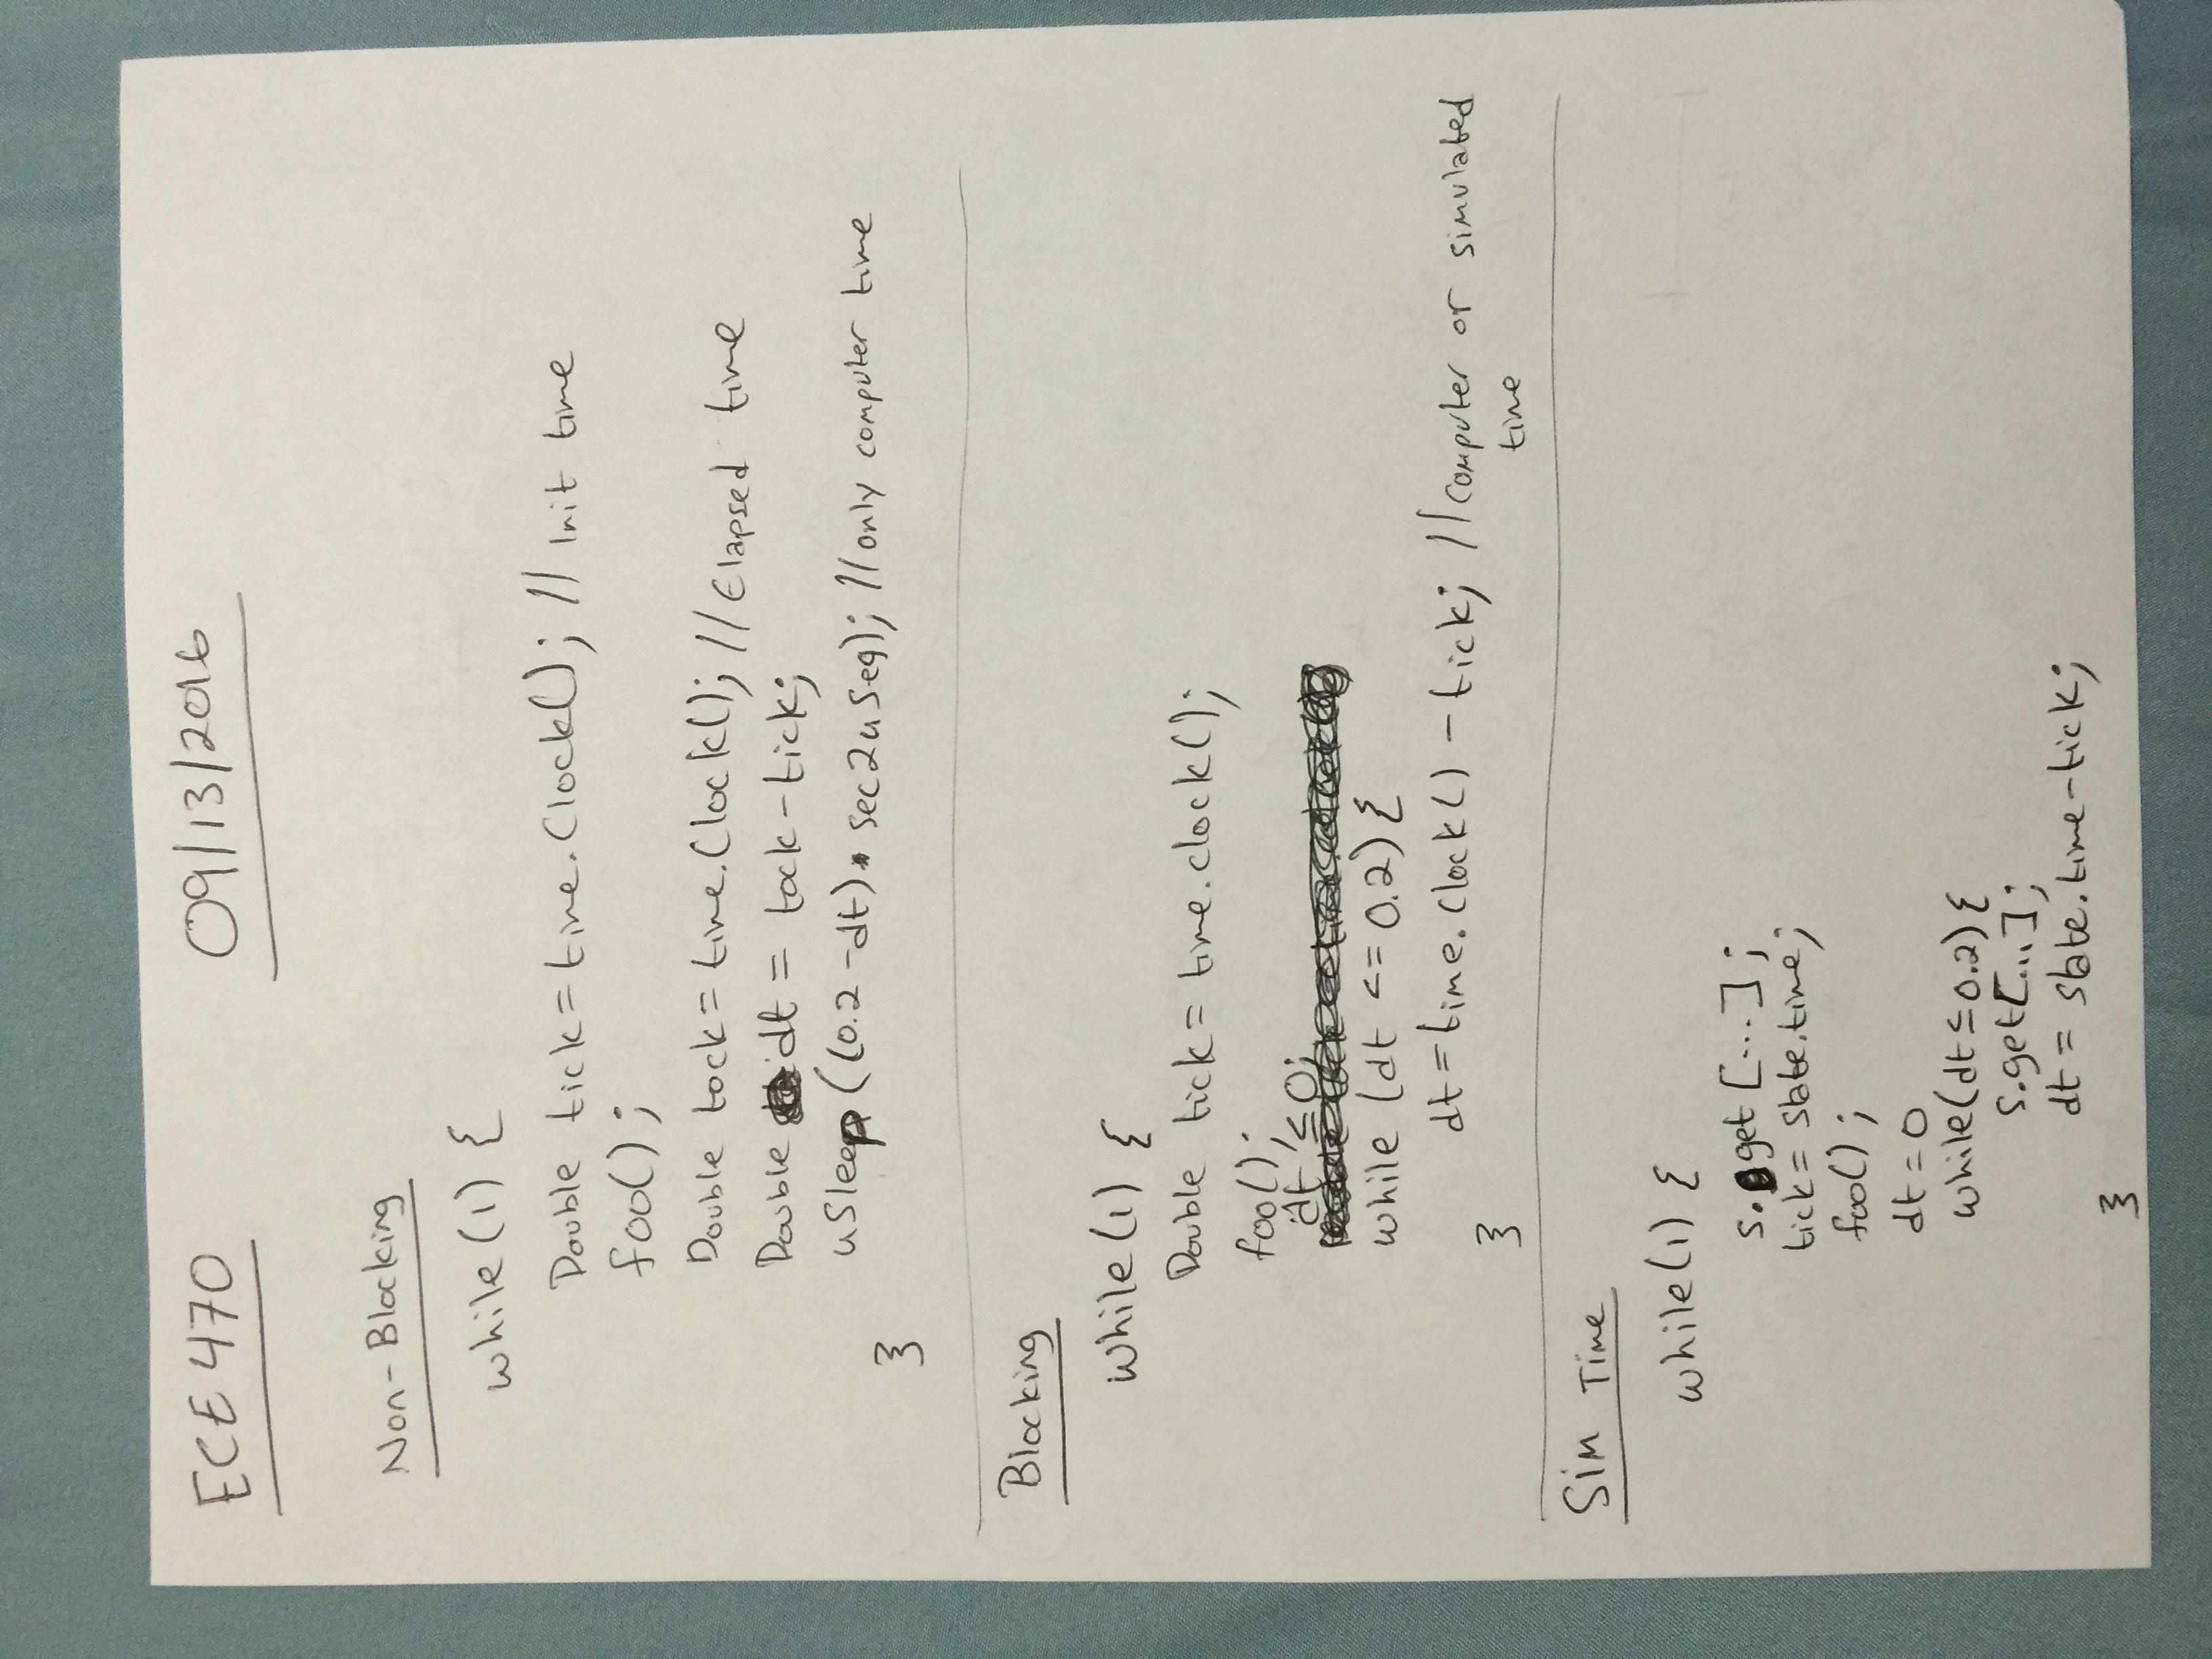 ECE 470 09/13/2016
Non-Blocking
while(1) {
Double tick = time.Clock(); // Init time
foo();
Double tock = time.Clock(); // Elapsed time
Double dt = tock - tick;
uSleep((0.2 - dt) * sec2uSeq); // only computer time
}
Blocking
While(1) {
Double tick = time.clock();
foo();
dt ≤ 0;
while (dt <= 0.2) {
dt = time.Clock() - tick; // computer or simulated
time
}
Sim Time
while(1) {
s.get [...];
tick = state.time;
foo();
dt = 0
while(dt ≤ 0.2) {
s.get[...];
dt = state.time - tick;
}